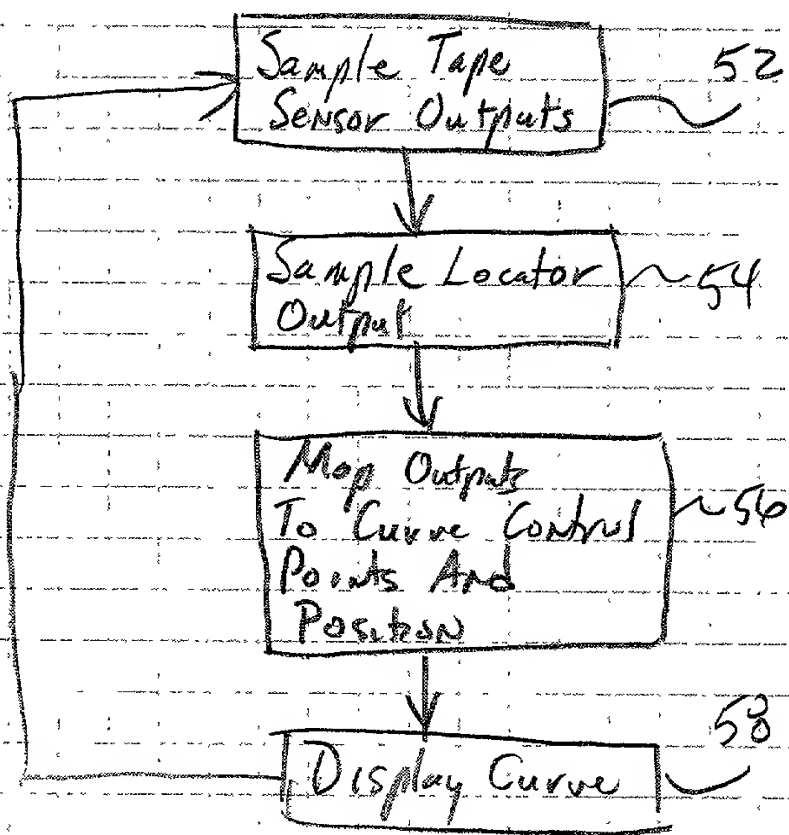 Sample Tape
Sensor Outputs
52
Sample Locator
Output
54
Map Outputs
To Curve Control
Points And
Position
56
Display Curve
58